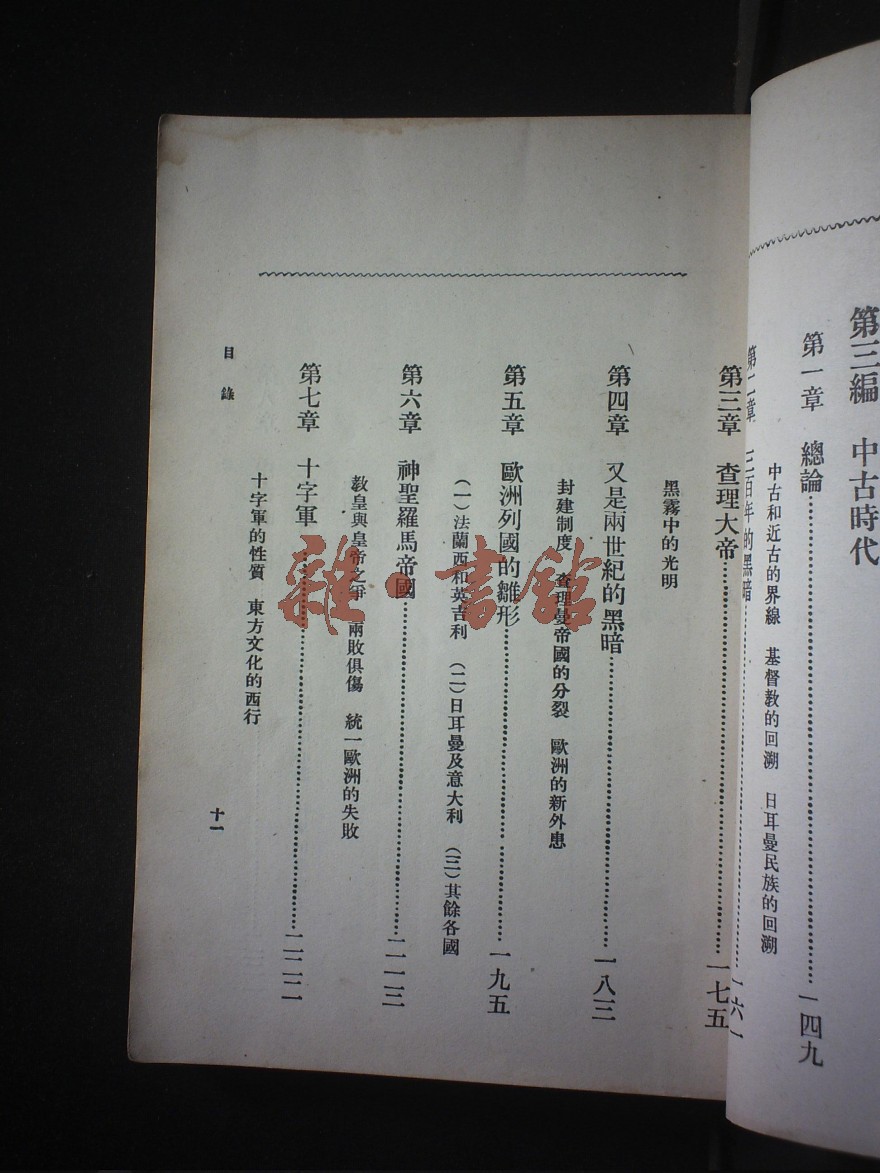 第三編 中古時代
第一章 總論……一四九
中古和近古的界線 基督教的回溯 日耳曼民族的回溯
第二章 三百年的黑暗……一六一
第三章 查理大帝……一七五
黑霧中的光明
第四章 又是兩世紀的黑暗……一八三
封建制度 查理曼帝國的分裂 歐洲的新外患
第五章 歐洲列國的雛形……一九五
(一)法蘭西和英吉利 (二)日耳曼及意大利 (三)其餘各國
第六章 神聖羅馬帝國……二一三
教皇與皇帝之爭 兩敗俱傷 統一歐洲的失敗
第七章 十字軍……二二二
十字軍的性質 東方文化的西行
目錄
十一
雜·書館